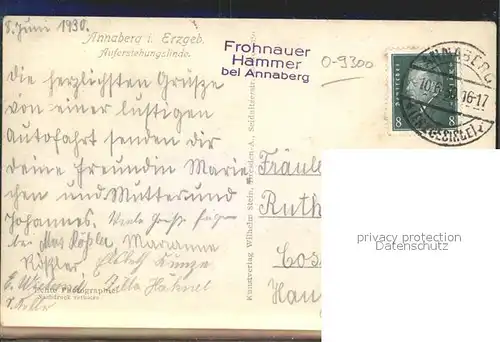 8. Juni 1930.
Annaberg i. Erzgeb.
Auferstehungslinde.
Frohnauer
Hammer
bei Annaberg
0-9300
ANNABERG
16-17
(ERZGEBIRGE)
8 8
Die herzlichsten Grüsze
von einer lustigen
Autofahrt senden dir
deine Freundin Marie
chen und Mutter und
Johannes. Viele Grüße
Max Köhler Marianne
Kunze
Hähnel
Echte Photographie
Nachdruck verboten
Kunstverlag Wilhelm Stein, Dresden-A., Seidnitzerstr.
Fräule
Ruth
Cos
Hau
privacy protection
Datenschutz